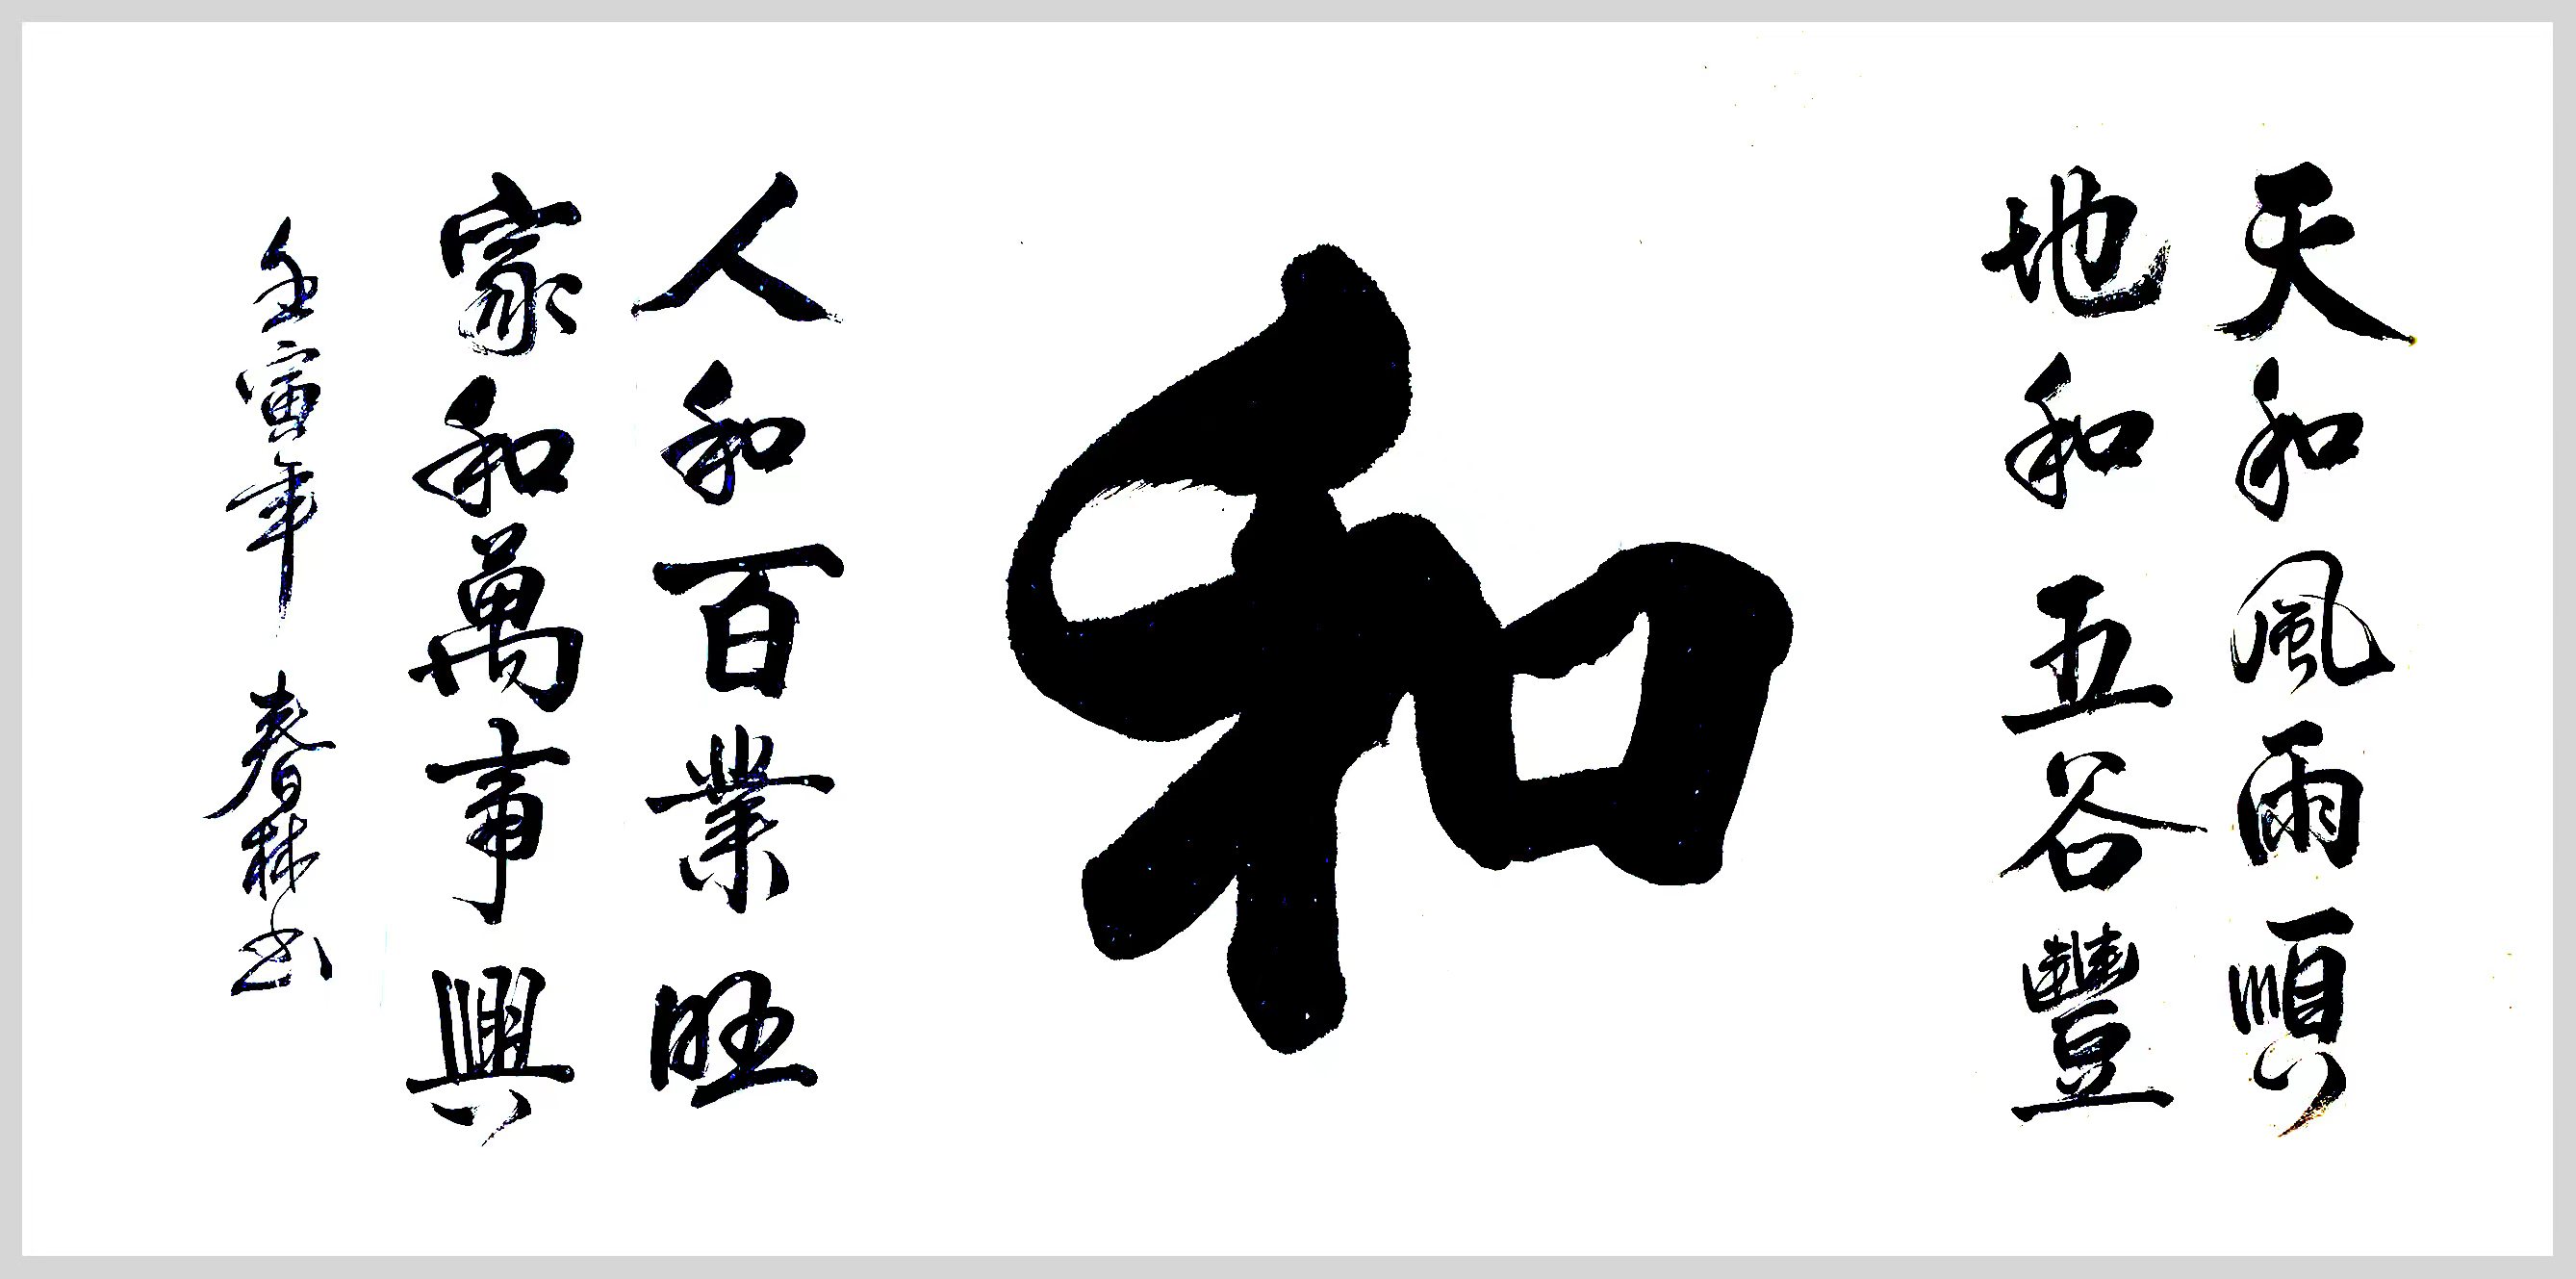 天和風雨順
地和五谷豐
和
人和百業旺
家和萬事興
壬寅年 春林书